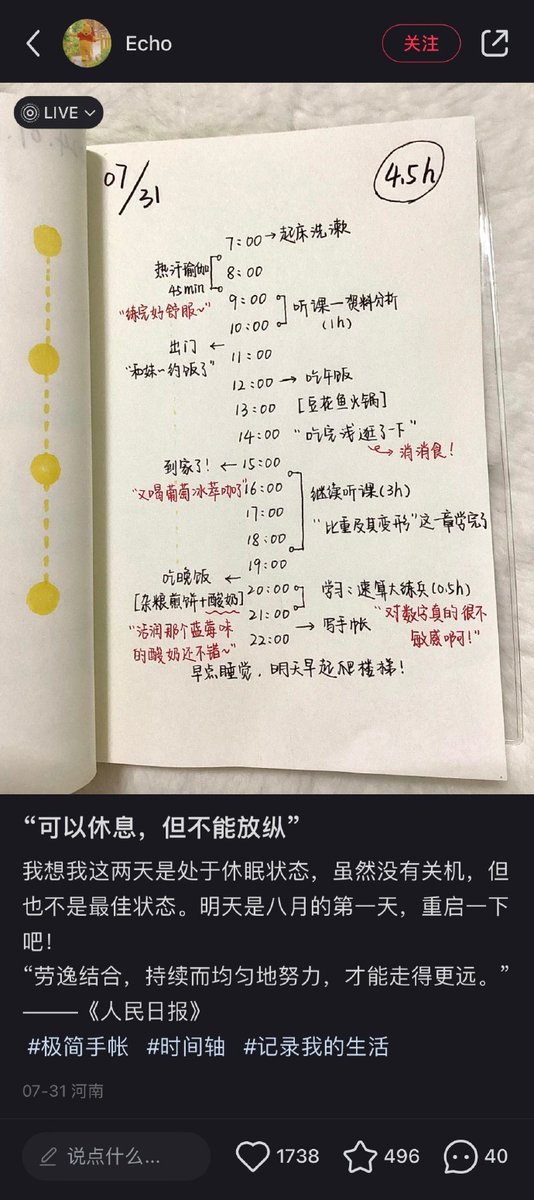 Echo
关注
LIVE
07/31
4.5h
7:00→起床洗漱
热汗瑜伽
45min
8:00
"练完好舒服~"
9:00
10:00
听课—资料分析
(1h)
出门 ←
11:00
"和妹~约饭了"
12:00 → 吃午饭
13:00 [豆花鱼火锅]
14:00 "吃完浅逛了一下"
→ 消消食!
到家了! ← 15:00
"又喝葡萄冰萃咖了"
16:00
17:00
18:00
继续听课(3h)
"比重及其变形"这一章学完了
19:00
吃晚饭 ←
[杂粮煎饼+酸奶]
20:00
21:00
学习:速算大练兵(0.5h)
"洁润那个蓝莓味
的酸奶还不错~"
22:00 → 写手帐
"对数字真的很不
敏感啊!"
早点睡觉,明天早起爬楼梯!
“可以休息，但不能放纵”
我想我这两天是处于休眠状态，虽然没有关机，但
也不是最佳状态。明天是八月的第一天，重启一下
吧！
“劳逸结合，持续而均匀地努力，才能走得更远。”
———《人民日报》
#极简手帐 #时间轴 #记录我的生活
07-31 河南
说点什么...
1738
496
40